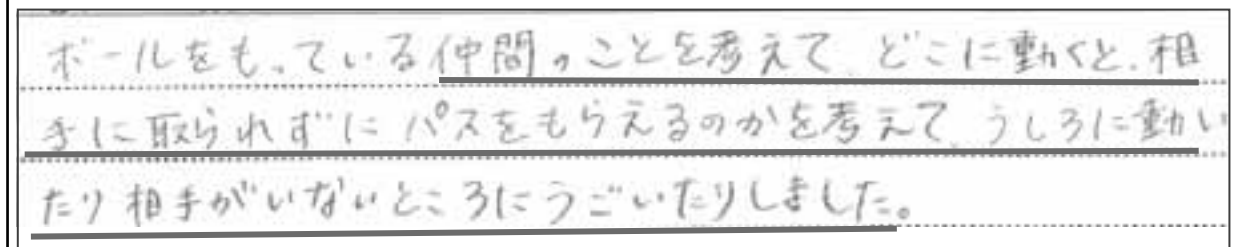 ボールをもっている仲間のことを考えて、どこに動くと、相
手に取られずに パスをもらえるのかを考えて、うしろに動い
たり相手がいないところにうごいたりしました。